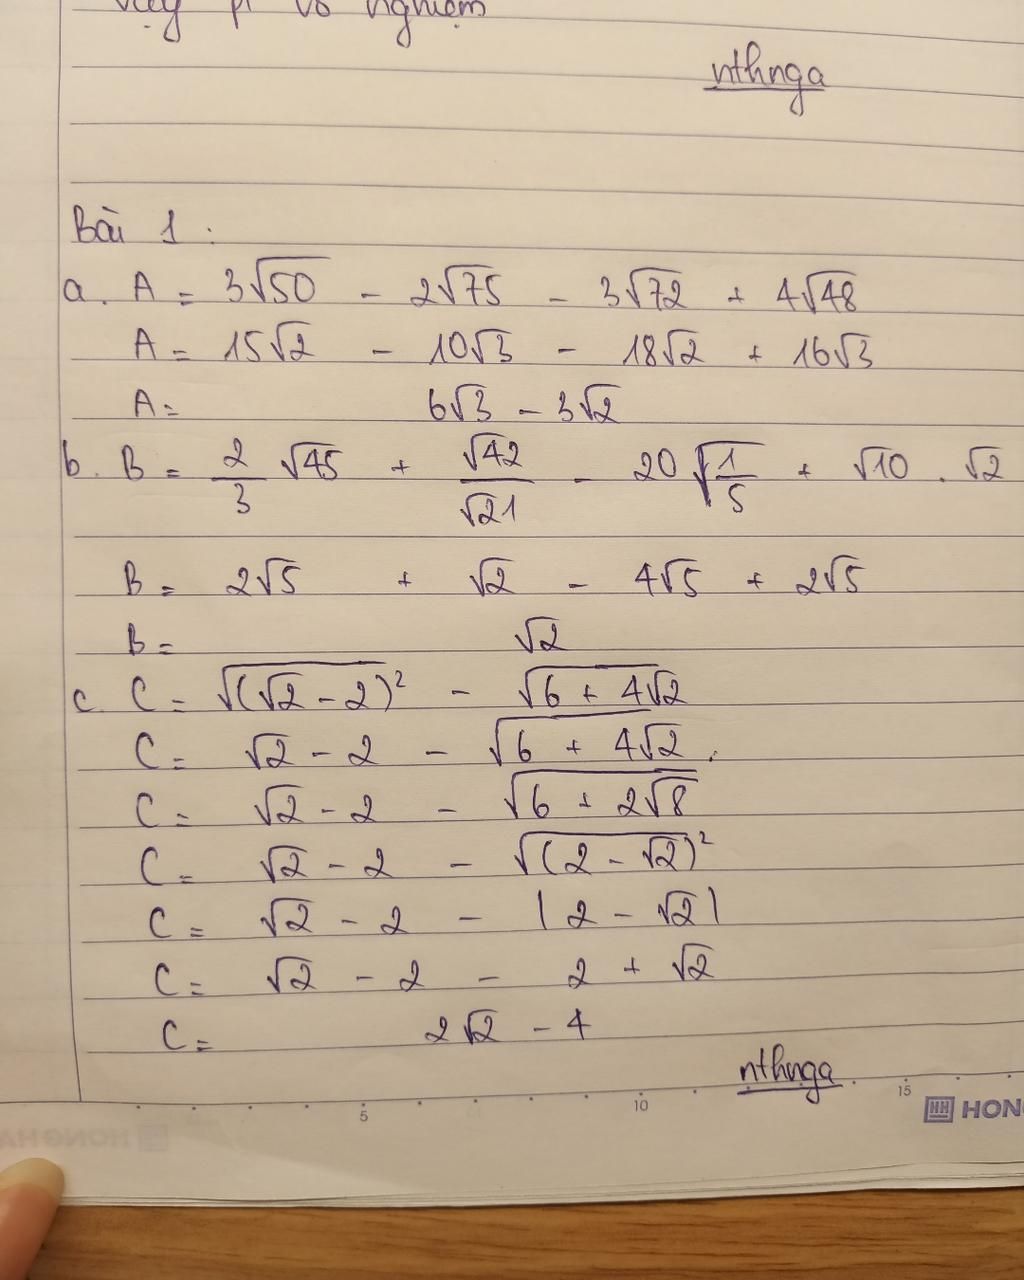 vậy pt vô nghiệm
nthnga
Bài 1 :
a. A = 3√50 - 2√75 - 3√72 + 4√48
A = 15√2 - 10√3 - 18√2 + 16√3
A = 6√3 - 3√2
b. B = 2/3 √45 + √42/√21 - 20√(1/5) + √10 . √2
B = 2√5 + √2 - 4√5 + 2√5
B = √2
c. C = √(√2 - 2)² - √6 + 4√2
C = √2 - 2 - √6 + 4√2 .
C = √2 - 2 - √6 + 2√8
C = √2 - 2 - √(2 - √2)²
C = √2 - 2 - |2 - √2|
C = √2 - 2 - 2 + √2
C = 2√2 - 4
nthnga
5 10 15
HH HON